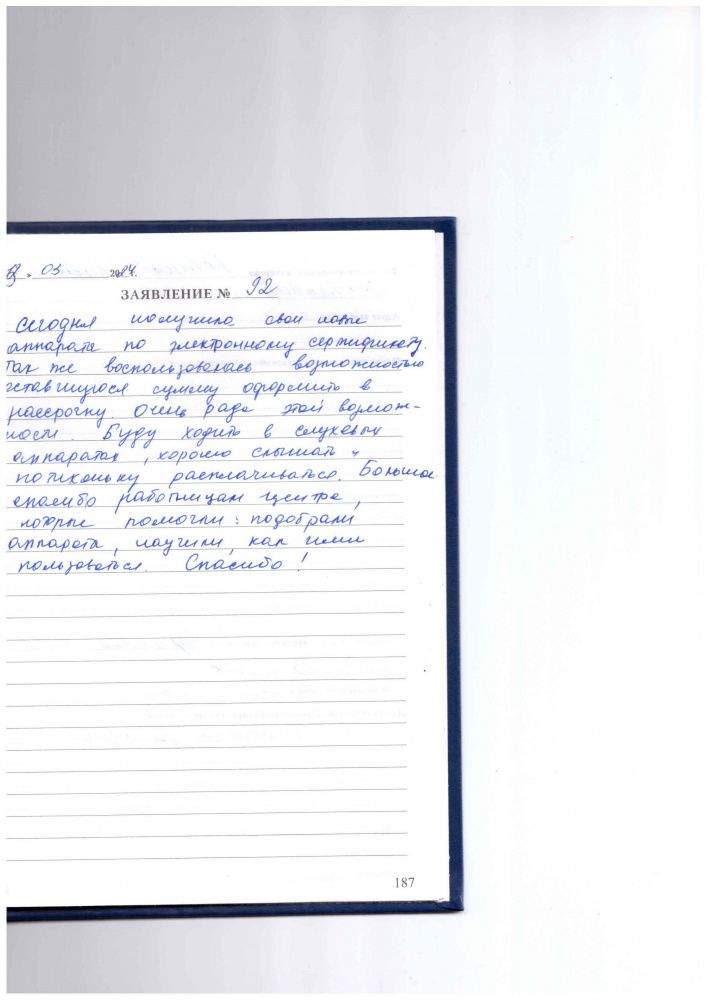 " 03 2024г.
ЗАЯВЛЕНИЕ № 92
Сегодня получила свои новые
аппарата по электронному сертификату.
Так же воспользовалась возможностью
оставшуюся сумму оформить в
рассрочку. Очень рада этой возмож-
ности. Буду ходить в слуховых
аппаратах, хорошо слышать и
потихоньку расплачиваться. Большое
спасибо работницам центра,
которые помогли: подобрали
аппарата, научили, как ими
пользоваться. Спасибо!
187